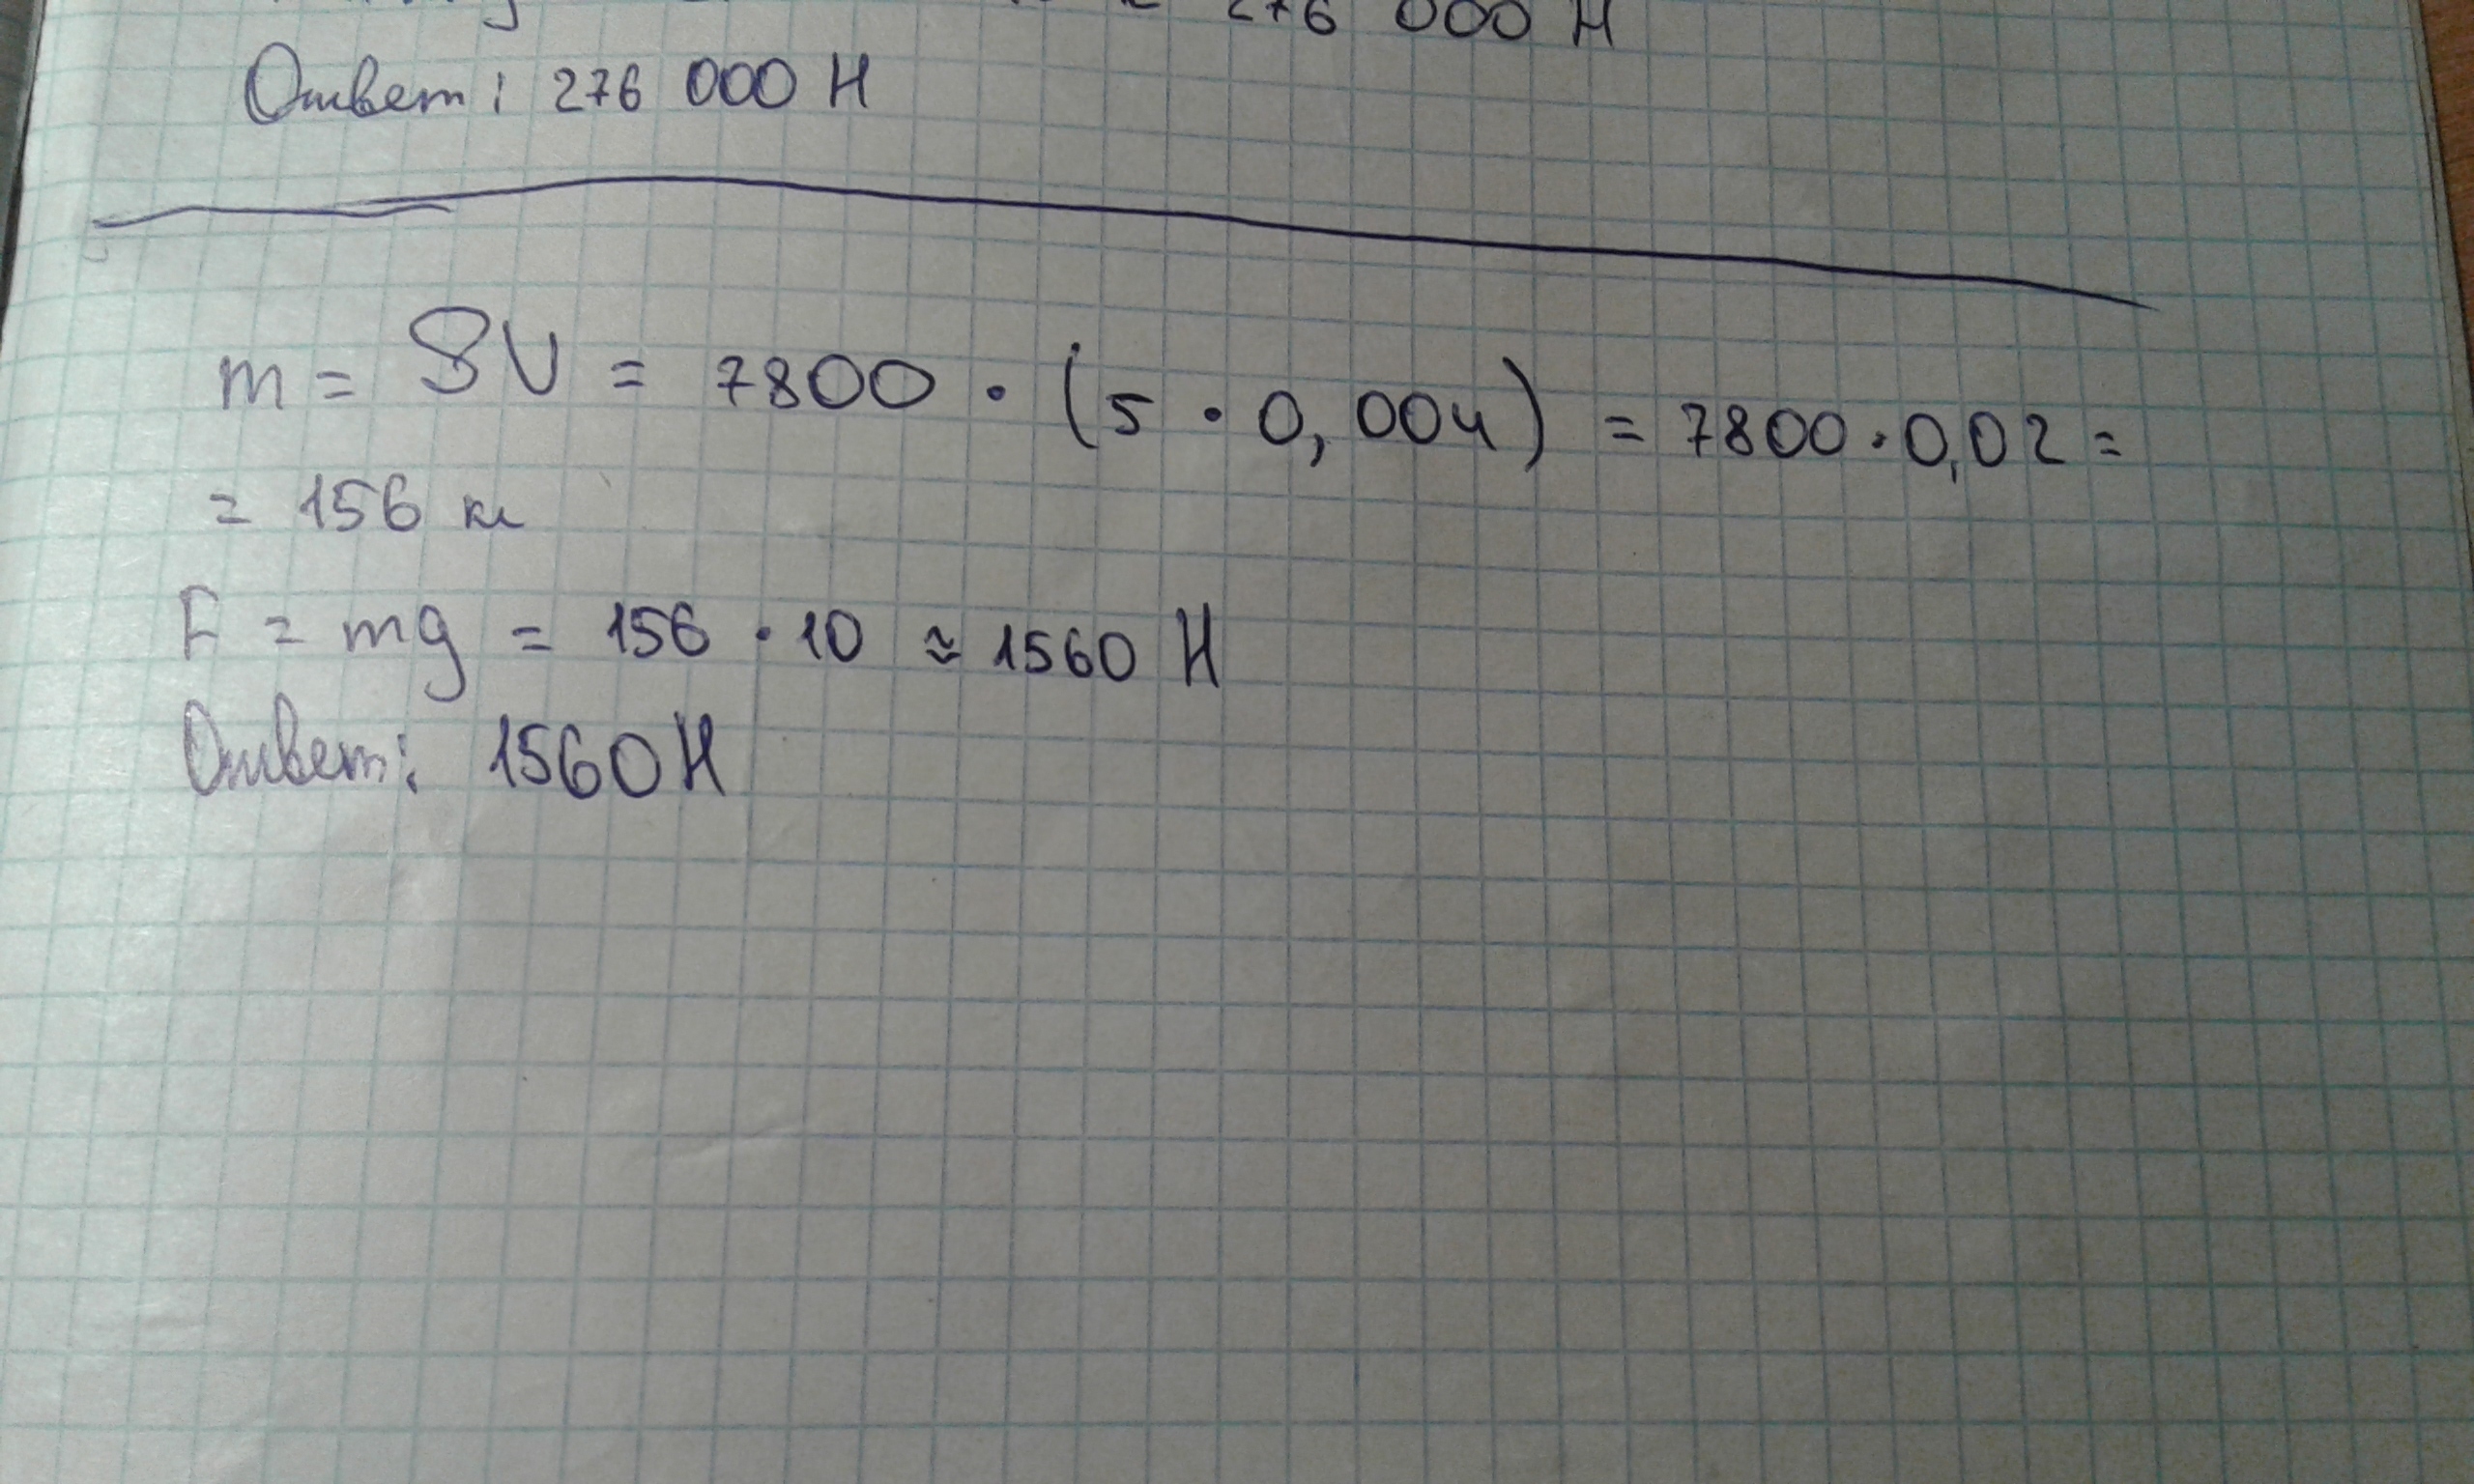 276 000 Н
Ответ: 276 000 Н
m = ρV = 7800 · (5 · 0,004) = 7800 · 0,02 =
= 156 кг
F = mg = 156 · 10 ≈ 1560 Н
Ответ: 1560 Н